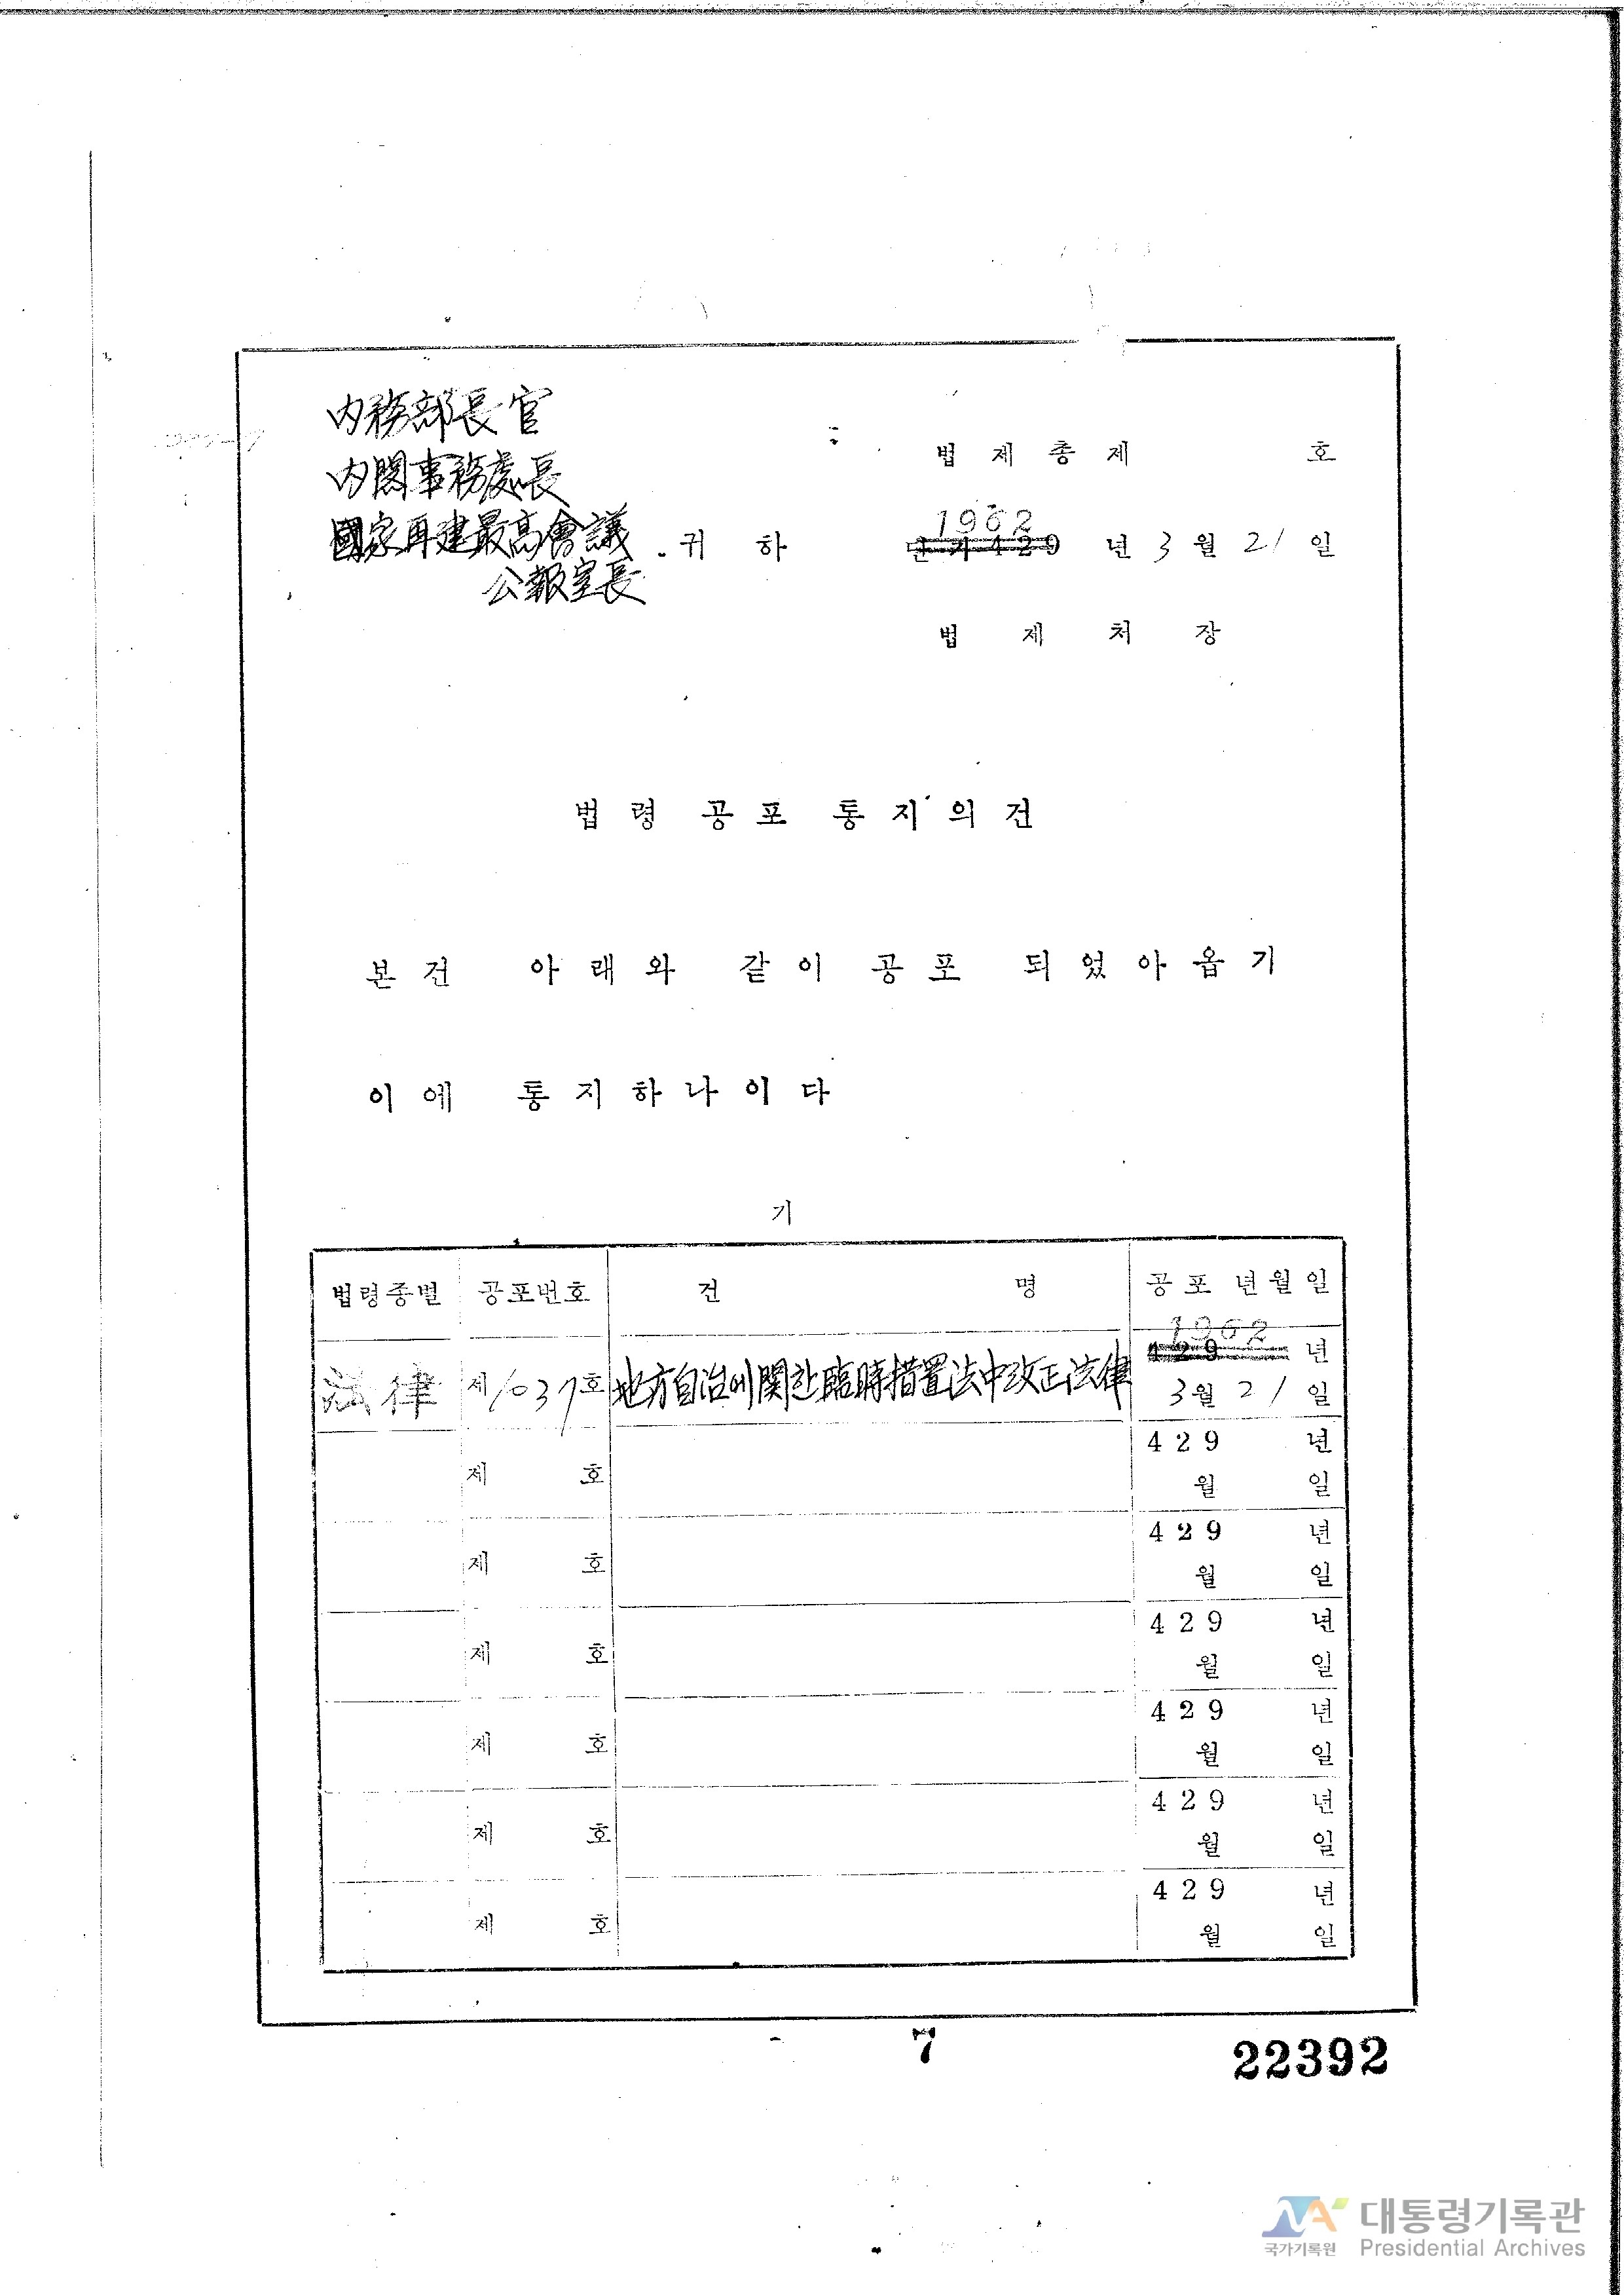 內務部長官
內閣事務處長
國家再建最高會議
公報室長
귀 하
법 제 총 제 호
1962
단 기 4 2 9 년 3 월 21 일
법 제 처 장
법 령 공 포 통 지 의 건
본 건 아 래 와 같 이 공 포 되 었 아 옵 기
이 에 통 지 하 나 이 다
기
법령종별 공포번호 건 명 공 포 년 월 일
法律 제1037호 地方自治에關한臨時措置法中改正法律 1962 4 2 9 년
3월 21일
제 호 4 2 9 년
월 일
제 호 4 2 9 년
월 일
제 호 4 2 9 년
월 일
제 호 4 2 9 년
월 일
제 호 4 2 9 년
월 일
제 호 4 2 9 년
월 일
7
22392
국가기록원 대통령기록관
Presidential Archives